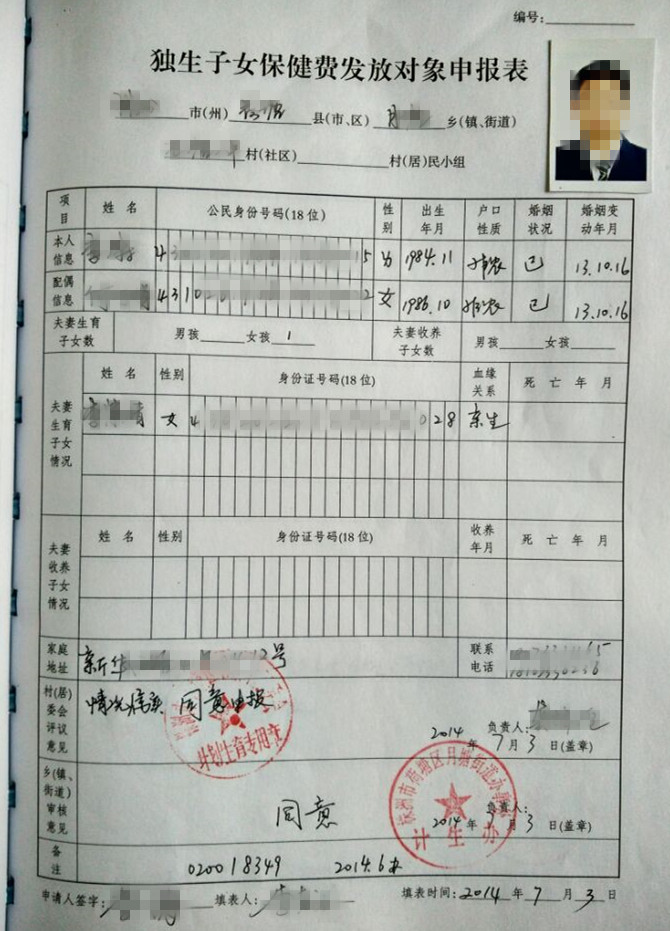 编号:
独生子女保健费发放对象申报表
市(州) 县(市、区) 乡(镇、街道)
村(社区) 村(居)民小组
项目 姓名 公民身份号码(18位) 性别 出生年月 户口性质 婚姻状况 婚姻变动年月
本人信息 4 5 男 1984.11 非农 已 13.10.16
配偶信息 4310 2 女 1986.10 非农 已 13.10.16
夫妻生育子女数 男孩 女孩 1 夫妻收养子女数 男孩 女孩
夫妻生育子女情况 姓名 性别 身份证号码(18位) 血缘关系 死亡年月
女 4 028 亲生
夫妻收养子女情况 姓名 性别 身份证号码(18位) 收养年月 死亡年月
家庭地址 新华 号 联系电话
村(居)委会评议意见 情况属实 同意申报
计划生育专用章
负责人:
2014年7月3日(盖章)
乡(镇、街道)审核意见 同意
株洲市荷塘区月塘街道办事处
计生办
负责人:
2014年7月3日(盖章)
备注 020018349 2014.6
申请人签字: 填表人: 填表时间:2014年7月3日